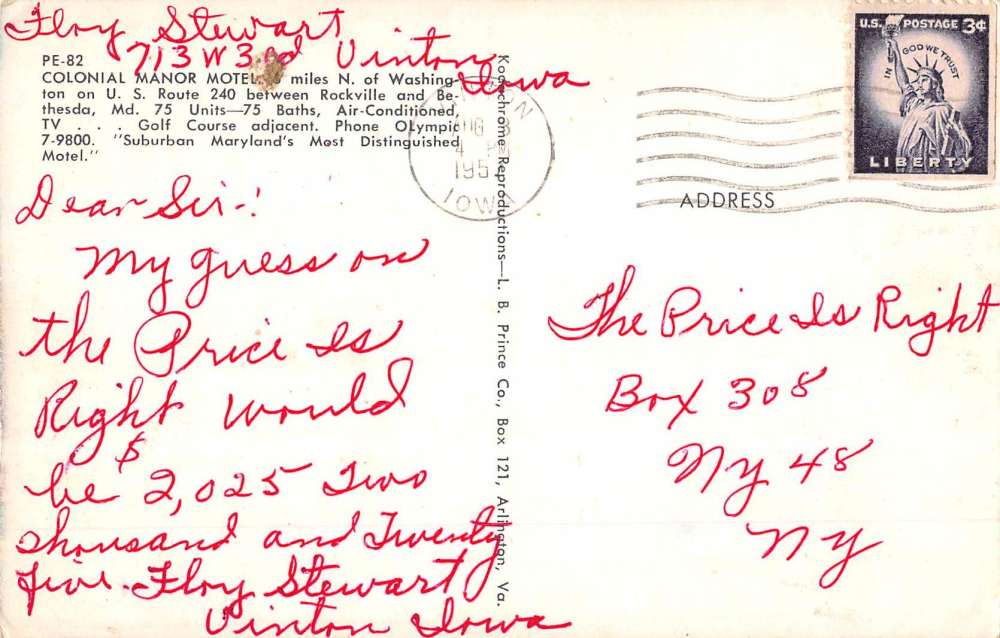 Floy Stewart
713 W 3rd Vinton
Iowa
PE-82
COLONIAL MANOR MOTEL, 6 miles N. of Washing-
ton on U. S. Route 240 between Rockville and Be-
thesda, Md. 75 Units—75 Baths, Air-Conditioned,
TV . . . Golf Course adjacent. Phone OLympic
7-9800. "Suburban Maryland's Most Distinguished
Motel."
Dear Sir-!
My guess on
the Price Is
Right would
be $2,025 Two
thousand and Twenty
five. Floy Stewart
Vinton Iowa
Kodachrome Reproductions—L. B. Prince Co., Box 121, Arlington, Va.
4 PM
195
IOWA
U.S. POSTAGE 3¢
IN GOD WE TRUST
LIBERTY
ADDRESS
The Price Is Right
Box 308
NY 48
NY